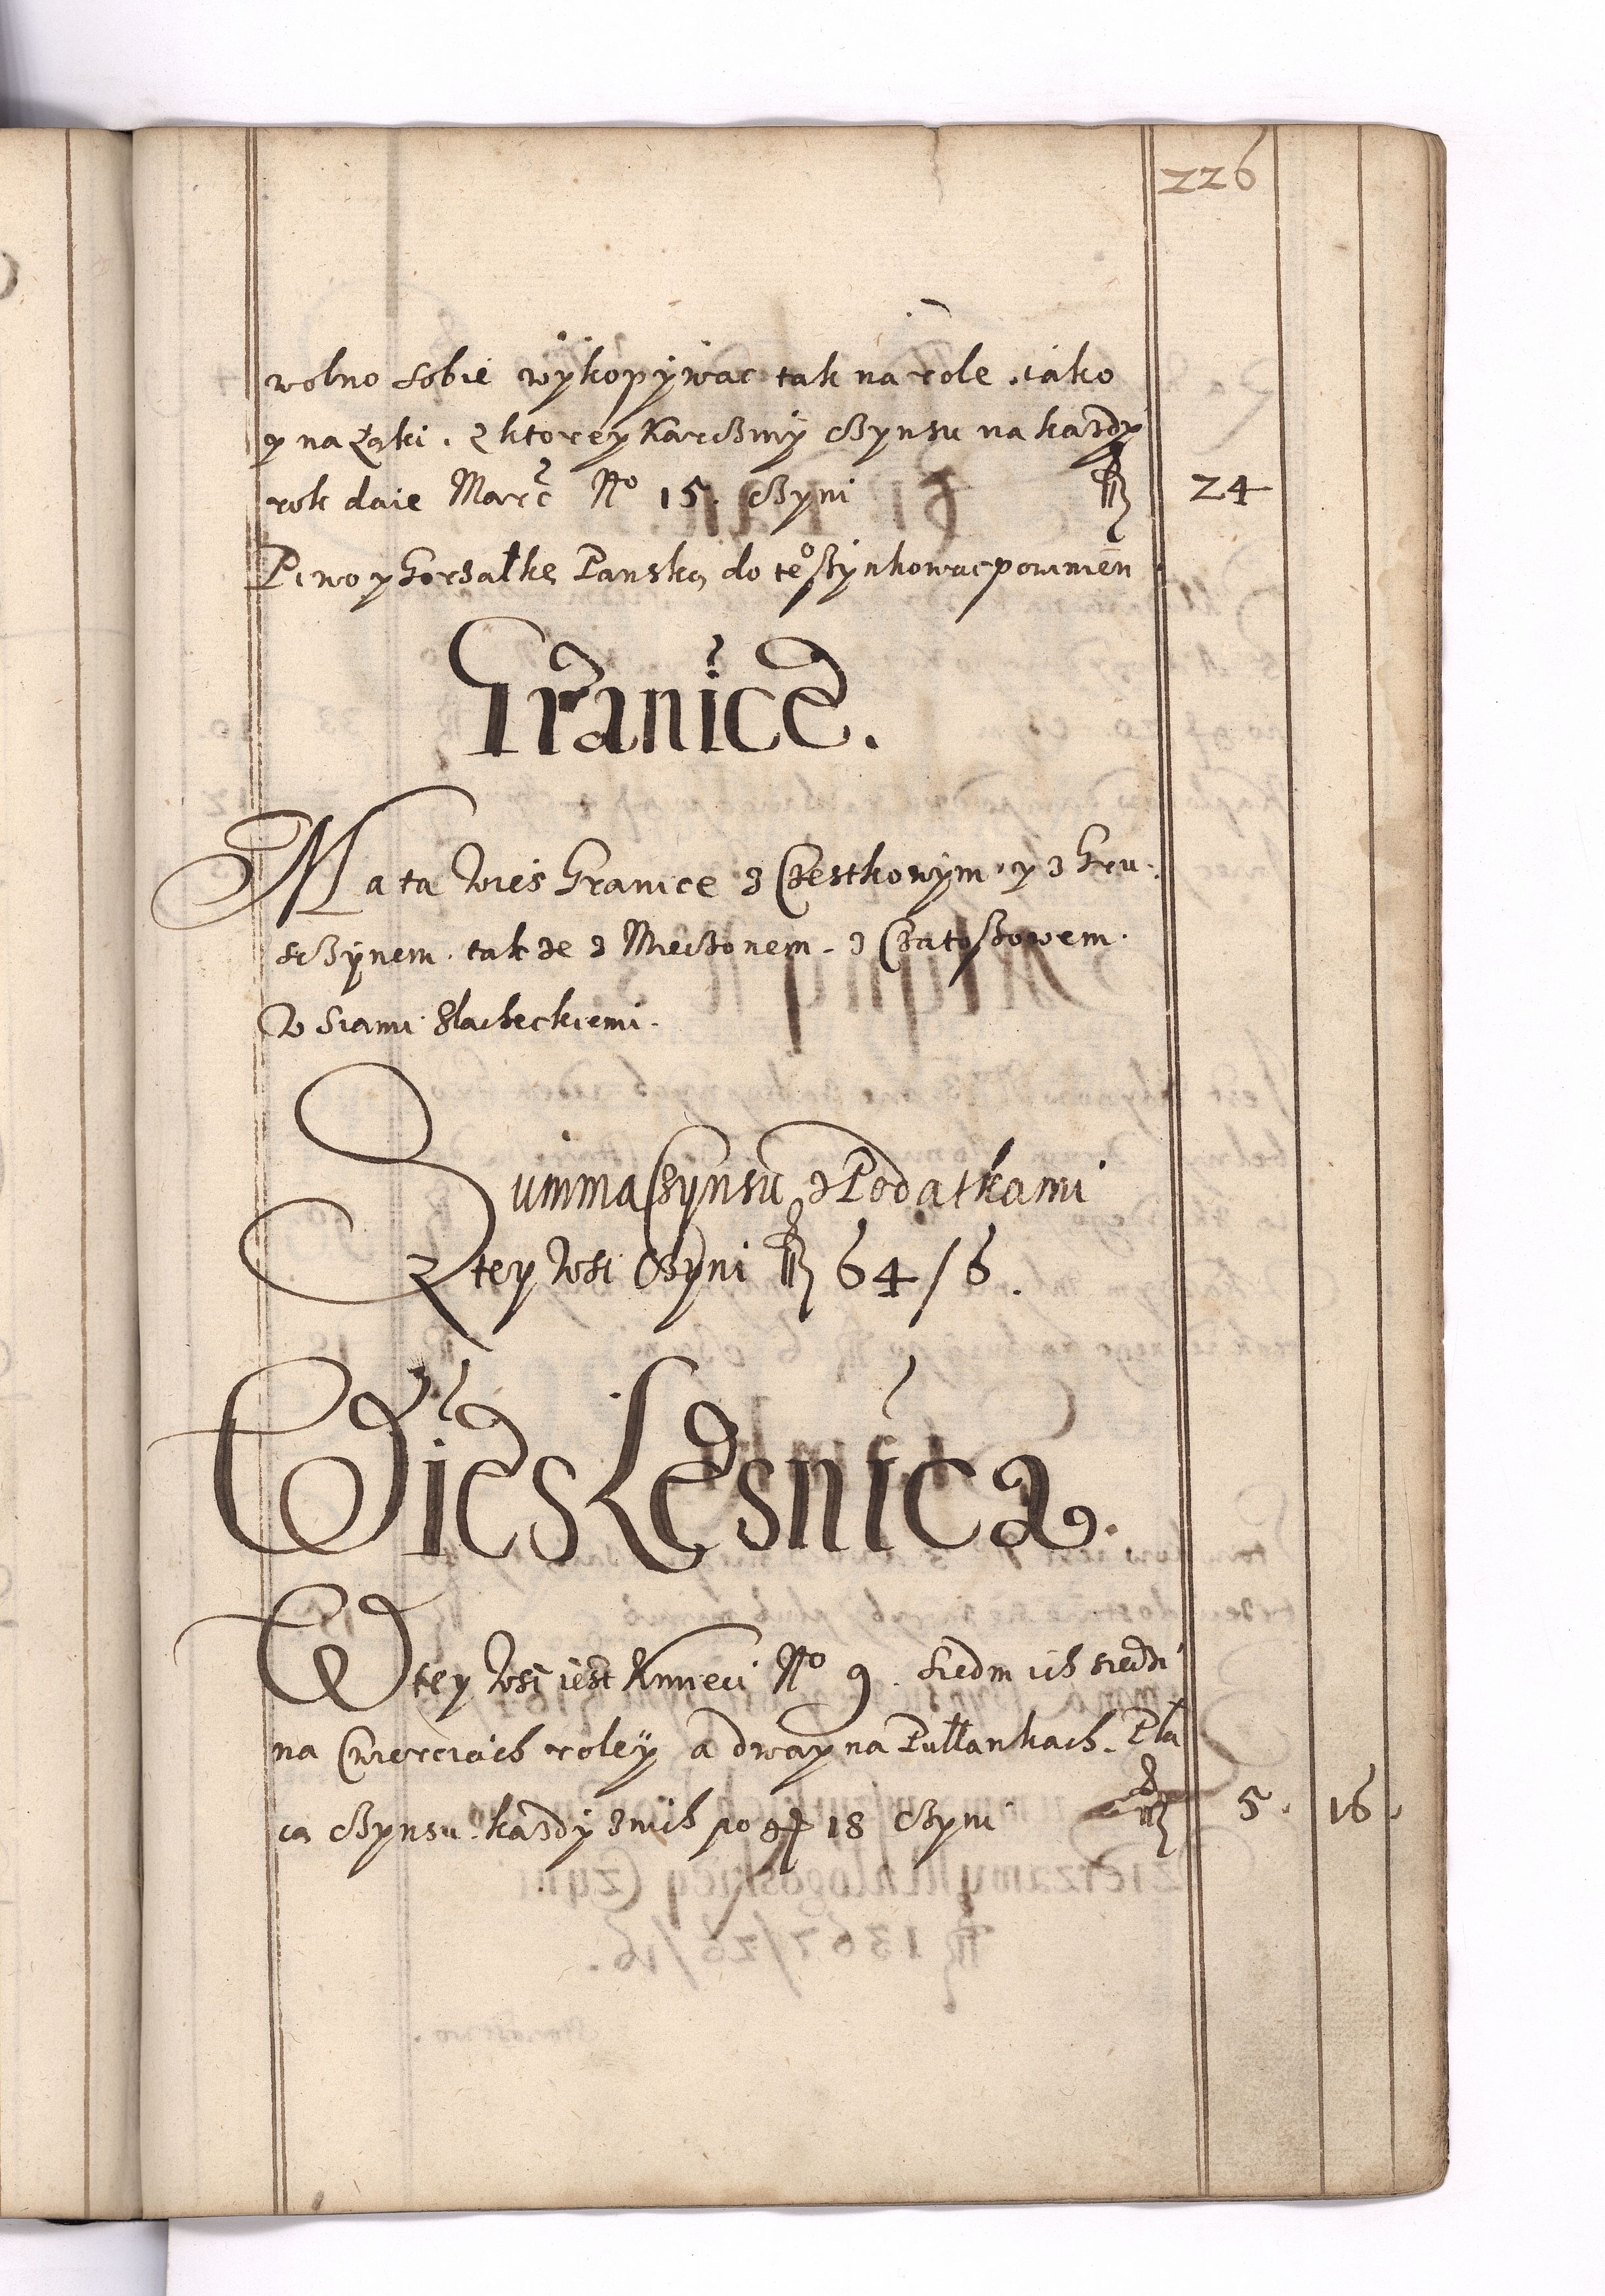 226
wolno sobie wÿkopÿwac tak na role iako
y na Łąki. z ktorey Karczmÿ Czynsu na kazdÿ
rok daie Marc No 15. Czyni fl 24
Piwo y Gorzałkę Panską do teo szynkowac powinien
Granice.
Ma ta Wies Granice z Czestkowÿm, y z Gru-
szczÿnem. tak ze z Mieczonem. z Czatoszowem.
Wsiami Slacheckiemi.
Summa Czynsu z Podatkami
Z tey Wsi Czyni fl 64/6.
Wies Lesnica.
W tey Wsi iest Kmieci No 9. Siedm ich siedzi
na Cwierciach roleÿ a dway na Pułłankach. Pła
cą Czynsu. kazdÿ z nich po gr 18 Czyni fl 5. 16.